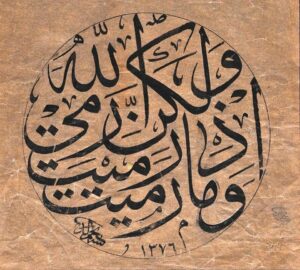 وما رميت
إذ رميت
ولكن الله رمى
١٣٧٦